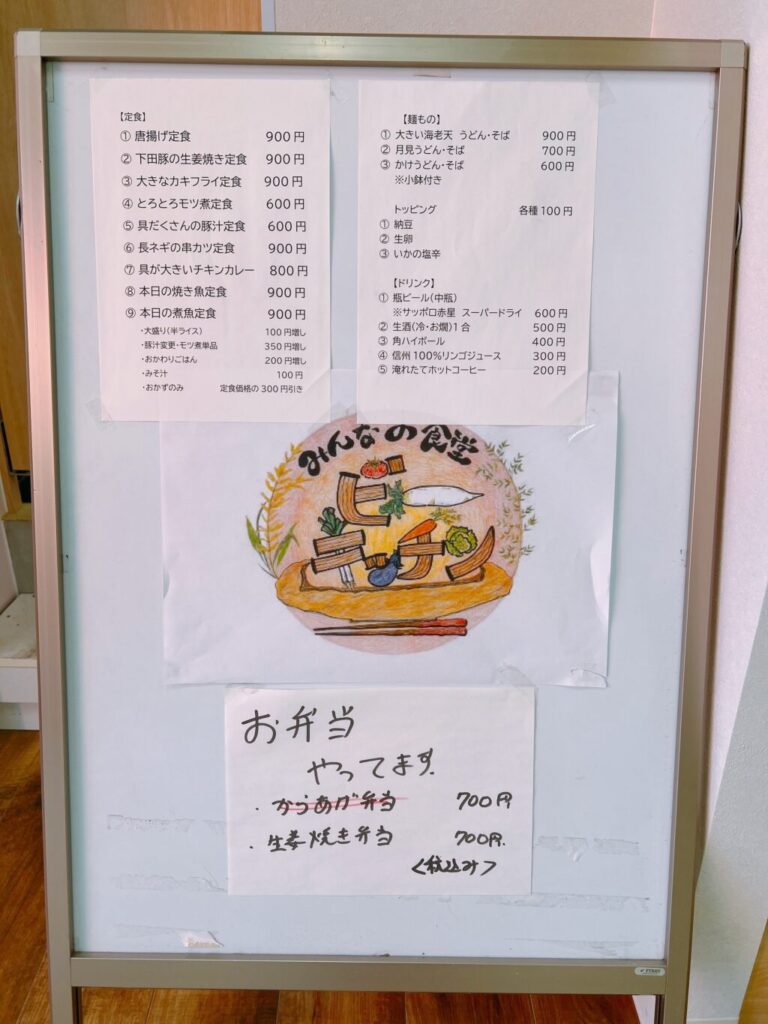 【定食】
① 唐揚げ定食 900円
② 下田豚の生姜焼き定食 900円
③ 大きなカキフライ定食 900円
④ とろとろモツ煮定食 600円
⑤ 具だくさんの豚汁定食 600円
⑥ 長ネギの串カツ定食 900円
⑦ 具が大きいチキンカレー 800円
⑧ 本日の焼き魚定食 900円
⑨ 本日の煮魚定食 900円
・大盛り(半ライス) 100円増し
・豚汁変更・モツ煮単品 350円増し
・おかわりごはん 200円増し
・みそ汁 100円
・おかずのみ 定食価格の300円引き
【麺もの】
① 大きい海老天 うどん・そば 900円
② 月見うどん・そば 700円
③ かけうどん・そば 600円
※小鉢付き
トッピング 各種100円
① 納豆
② 生卵
③ いかの塩辛
【ドリンク】
① 瓶ビール(中瓶)
※サッポロ赤星 スーパードライ 600円
② 生酒(冷・お燗)1合 500円
③ 角ハイボール 400円
④ 信州100%リンゴジュース 300円
⑤ 淹れたてホットコーヒー 200円
みんなの食堂
ビ
キッチン
お弁当
やってます
・からあげ弁当 700円
・生姜焼き弁当 700円.
<税込み>